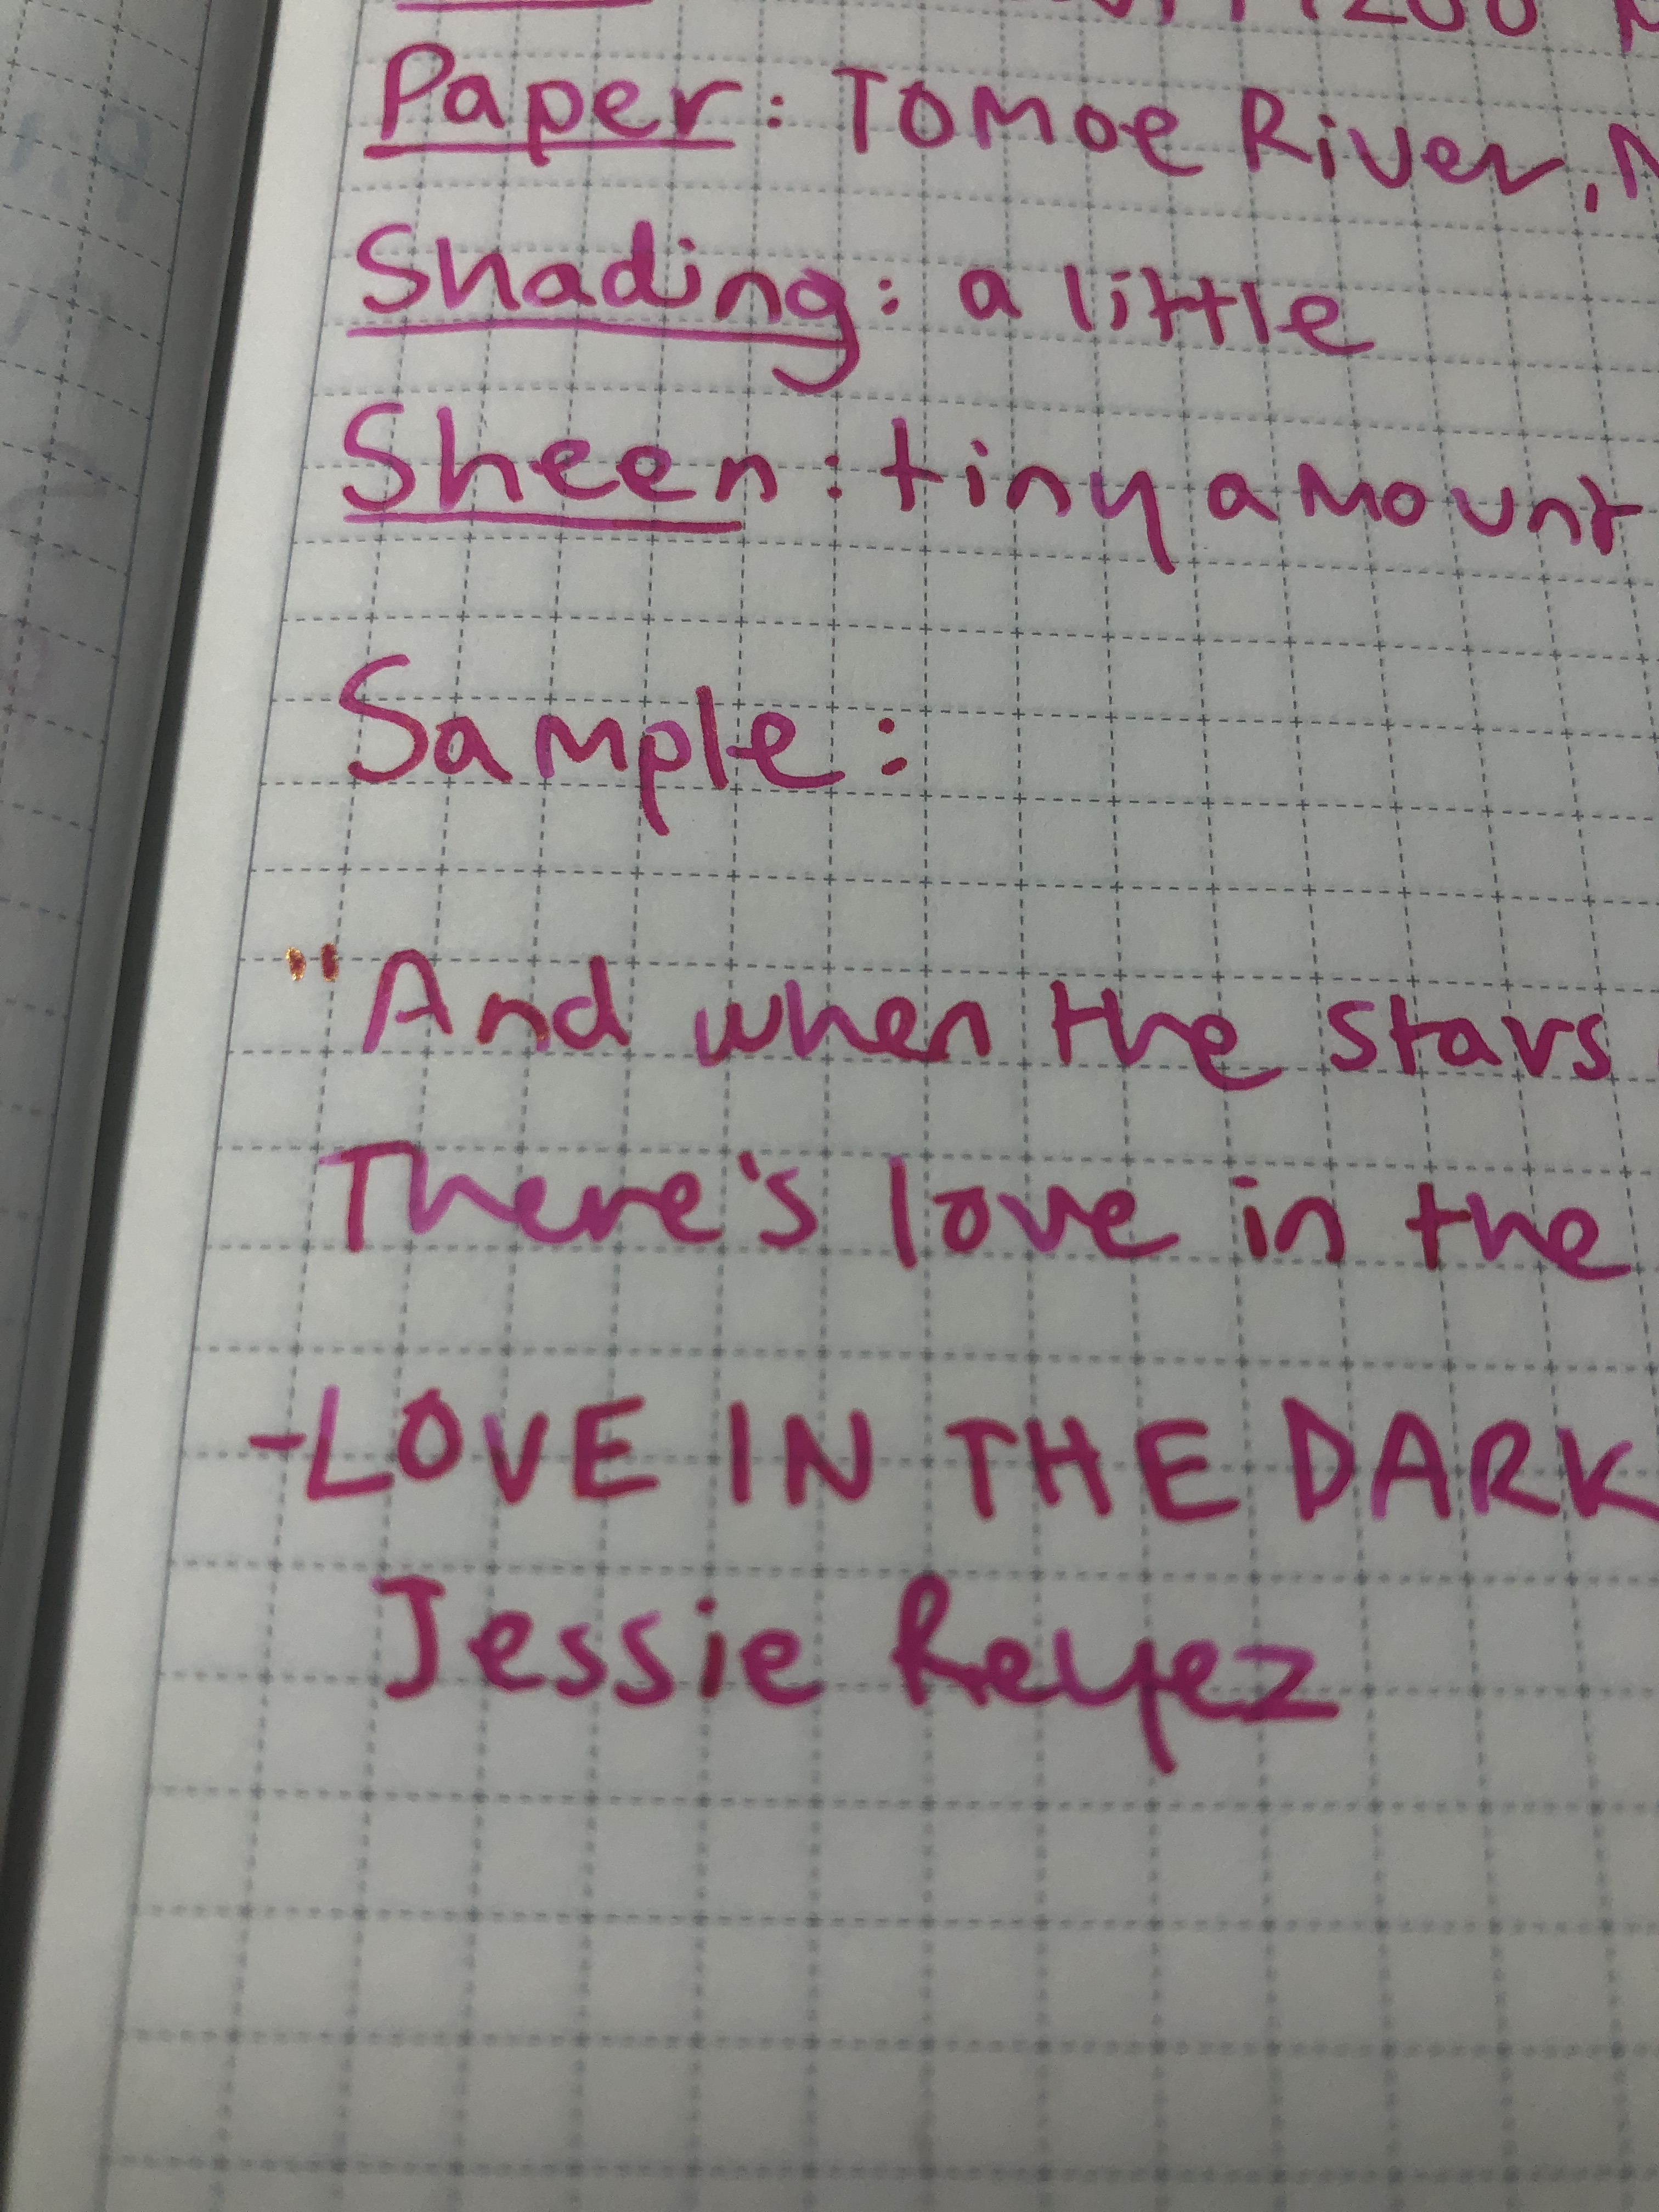 Paper: Tomoe River,
Shading: a little
Sheen: tiny amount
Sample:
"And when the stars
There's love in the
-LOVE IN THE DARK
Jessie Reyez